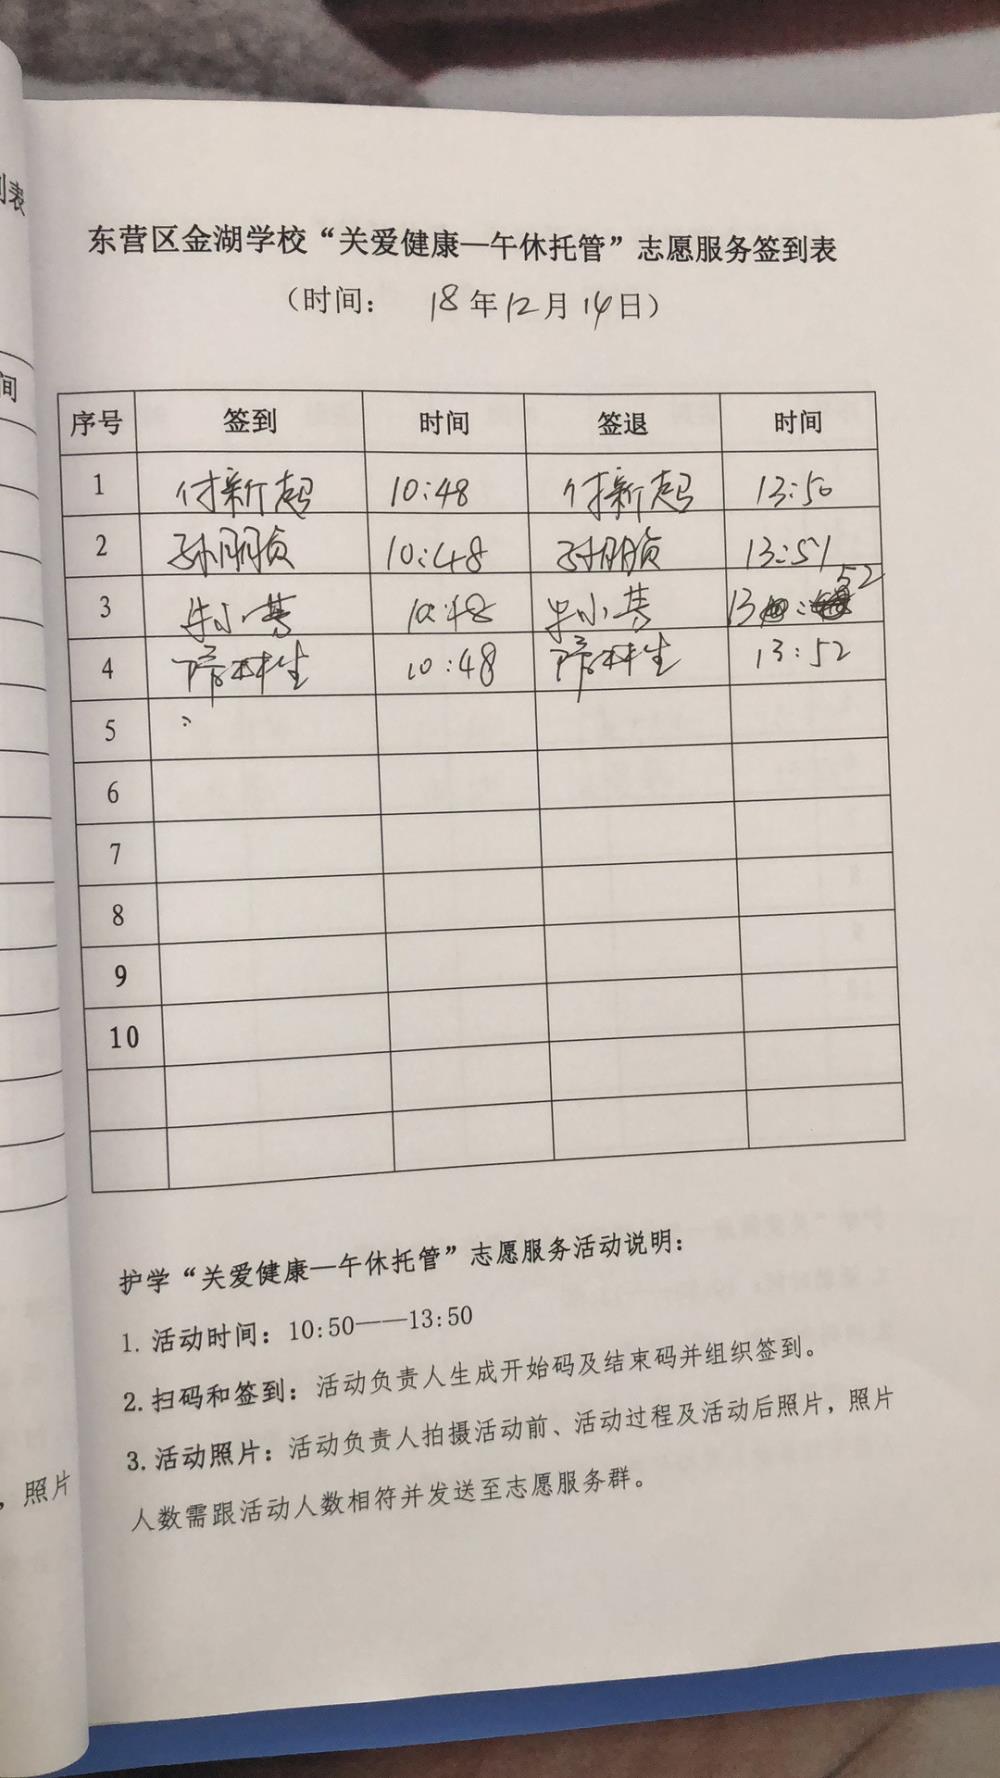 东营区金湖学校“关爱健康—午休托管”志愿服务签到表
（时间： 18年12月14日）
序号 签到 时间 签退 时间
1 付新超 10:48 付新超 13:50
2 孙朋贞 10:48 孙朋贞 13:51
3 10:48 13:52
4 10:48 13:52
5
6
7
8
9
10
护学“关爱健康—午休托管”志愿服务活动说明：
1. 活动时间：10:50——13:50
2. 扫码和签到：活动负责人生成开始码及结束码并组织签到。
3. 活动照片：活动负责人拍摄活动前、活动过程及活动后照片，照片
人数需跟活动人数相符并发送至志愿服务群。
到表
间
，照片